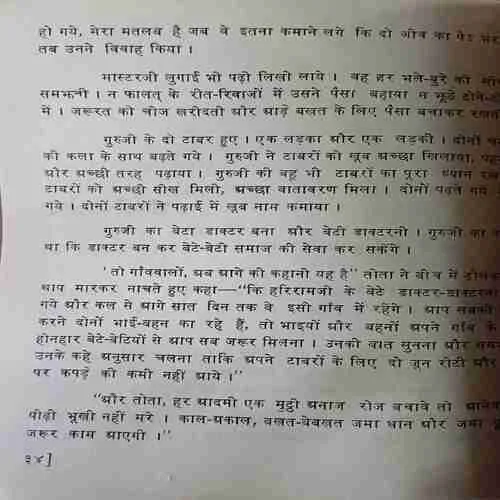 हो गये, मेरा मतलब है जब वे इतना कमाने लगे कि दो जीव का पेट भर
तब उनने विवाह किया ।
मास्टरजी लुगाई भी पढ़ी लिखी लाये । वह हर भले-बुरे की
समझनी । न फालतू के रीत-रिवाजों में उसने पैसा बहाया न भूठे
में । जरूरत की चीज खरीदती और आड़े बखत के लिए पैसा बचाकर
गुरुजी के दो टाबर हुए । एक लड़का और एक लड़की । दोनों
की कला के साथ बढ़ते गये । गुरुजी ने टाबरों को खूब अच्छा खिलाया,
और अच्छी तरह पढ़ाया । गुरुजी की बहू भी टाबरों का पूरा ध्यान
टाबरों को अच्छी सीख मिली, अच्छा वातावरण मिला । दोनों पढ़ते गये
गये । दोनों टाबरों ने पढ़ाई में खूब नाम कमाया ।
गुरुजी का बेटा डाक्टर बना और बेटी डाक्टरनी । गुरुजी का
था कि डाक्टर बन कर बेटे-बेटी समाज की सेवा कर सकेंगे ।
'तो गाँववालों, अब आगे की कहानी यह है" तोता ने बीच में
थाप मारकर नाचते हुए कहा—"कि हरिरामजी के बेटे डाक्टर-डाक्टरनी
गये और कल से आगे सात दिन तक वे इसी गाँव में रहेंगे । आप सबकी
करने दोनों भाई-बहन आ रहे हैं, तो भाइयों और बहनों अपने गाँव के
होनहार बेटे-बेटियों से आप सब जरूर मिलना । उनकी बात सुनना और
उनके कहे अनुसार चलना ताकि अपने टाबरों के लिए दो जून रोटी और
पर कपड़ें की कमी नहीं आये ।"
"और तोता, हर आदमी एक मुट्ठी अनाज रोज बचावे तो
पीढ़ी भूखी नहीं मरे । काल-अकाल, बखत-बेबखत जमा धान और जमा
जरूर काम आएगी ।"
३४]